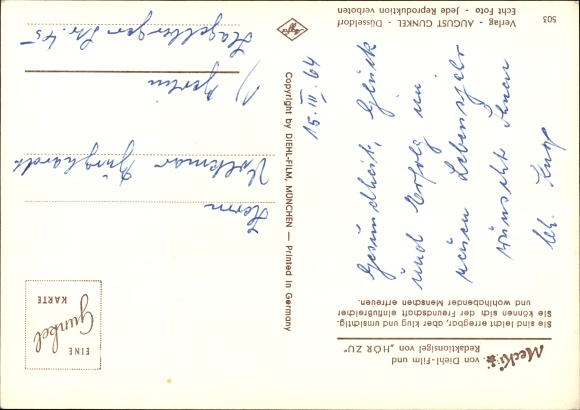 Mecki
von Diehl-Film und
Redaktionsigel von „HÖR ZU“
Sie sind leicht erregbar, aber klug und umsichtig.
Sie können sich der Freundschaft einflußreicher
und wohlhabender Menschen erfreuen.
15. III. 64
Gesundheit, Glück
und Erfolg im
neuen Lebensjahr
wünscht Ihnen
Chr. Knop
503
Verlag - AUGUST GUNKEL - Düsseldorf
Echt Foto - Jede Reproduktion verboten
Copyright by DIEHL-FILM, MÜNCHEN — Printed in Germany
Agfa
EINE
Gunkel
KARTE
Herrn
Volkmar
Burghardt
1) Berlin
Hagelberger Str. 45